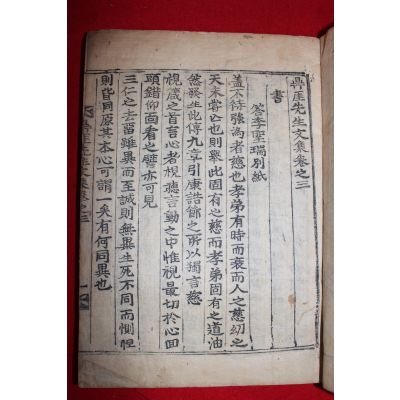 厓先生文集卷之三
書
答李聖瑞別紙
盖不待強為者慈也孝弟有時而衰而人之慈幼之
天未嘗亡也則擧此固有之慈而孝弟固有之道油
然發生此傳九章引康誥節之所以獨言慈
視箴之首言心者視聽言動之中惟視最切於心回
頭錯仰面看之譬亦可見
三仁之去留雖異而至誠則無異生死不同而惻怛
則皆同原其本心可謂一矣有何同異也
厓先生文集卷之三
一